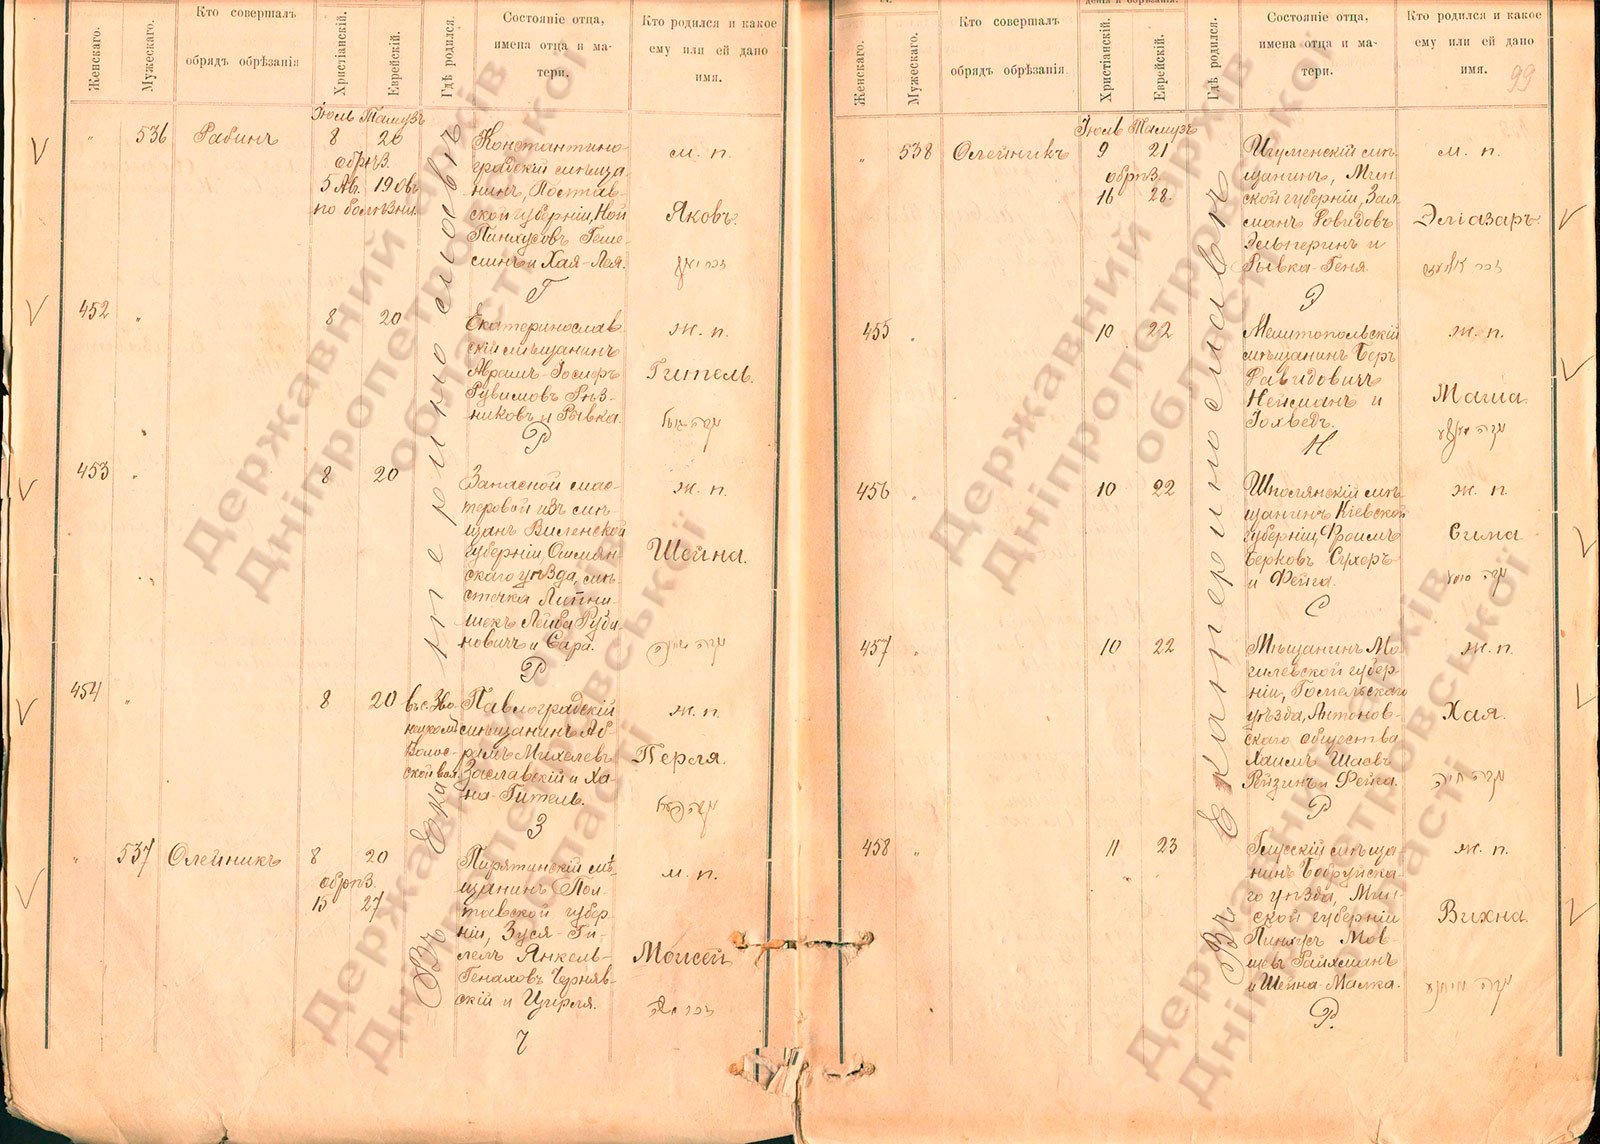 Женскаго.
Мужескаго.
Кто совершалъ
обрядъ обрѣзанія
Христіанскій.
Еврейскій.
Гдѣ родился.
Состояніе отца,
имена отца и ма-
тери.
Кто родился и какое
ему или ей дано
имя.
Въ Екатеринославѣ
Іюль Тамузъ
" 536 Рабинъ 8 20
обрѣз.
5 Ав. 19 Овъ
по болѣзни.
Константино-
градскій мѣща-
нинъ, Полтав-
ской губерніи, Ной
Пинхусовъ Геше-
линъ и Хая-Лея.
Г
м. п.
Яковъ.
זכר יעקב
452 " 8 20
Екатеринослав
скій мѣщанинъ
Абрамъ-Іосифъ
Рувимовъ Рѣз-
никовъ и Рывка.
Р
ж. п.
Гитель.
453 " 8 20
Запасной мас-
теровой изъ мѣ-
щанъ Виленской
губерніи Ошмян
скаго уѣзда, мѣ-
стечка Липни-
шекъ Лейба Руби-
новичъ и Сара.
Р
ж. п.
Шейна.
נקבה שיינה
454 " 8 20
Павлоградскій
мѣщанинъ Аб-
рамъ Михелевъ
Заславскій и Ха-
на-Гитель.
З
ж. п.
Перля.
נקבה פערל
" 537 Олейникъ 8 20
обрѣз.
15 27
Пирятинскій мѣ-
щанинъ Пол-
тавской губер
ніи, Зуся-Ги-
лель Янкель-
Генаховъ Черняв-
скій и Цирля.
Ч
м. п.
Моисей
זכר משה
Женскаго.
Мужескаго.
Кто совершалъ
обрядъ обрѣзанія
Христіанскій.
Еврейскій.
Гдѣ родился.
Состояніе отца,
имена отца и ма-
тери.
Кто родился и какое
ему или ей дано
имя.
99
Въ Екатеринославѣ
Іюль Тамузъ
" 538 Олейникъ 9 21
обрѣз.
16 28.
Игуменскій мѣ
щанинъ, Мин
ской губерніи, Зал
манъ Довидовъ
Эльперинъ и
Рывка-Геня.
Э
м. п.
Эліазаръ.
455 " 10 22
Мелитопольскій
мѣщанинъ Беръ
Давидовичъ
Нейманъ и
Іохведъ.
Н
ж. п.
Маша.
456 " 10 22
Шполянскій мѣ
щанинъ Кіевской
губерніи, Фроимъ
Берковъ Сухеръ
и Фейга.
С
ж. п.
Сима
457 " 10 22
Мѣщанинъ Мо-
гилевской губер-
ніи, Гомельскаго
уѣзда, Антонов-
скаго общества
Хаимъ Шаевъ
Рейзинъ и Фейга.
Р
ж. п.
Хая.
נקבה חיה
458 " 11 23
Глусскій мѣща-
нинъ Бобруйска-
го уѣзда, Мин-
ской губерніи
Пинхусъ Мов-
шевъ Райхманъ
и Шейна-Малка.
Р.
ж. п.
Вихна.
Державний архів
Дніпропетровської
області